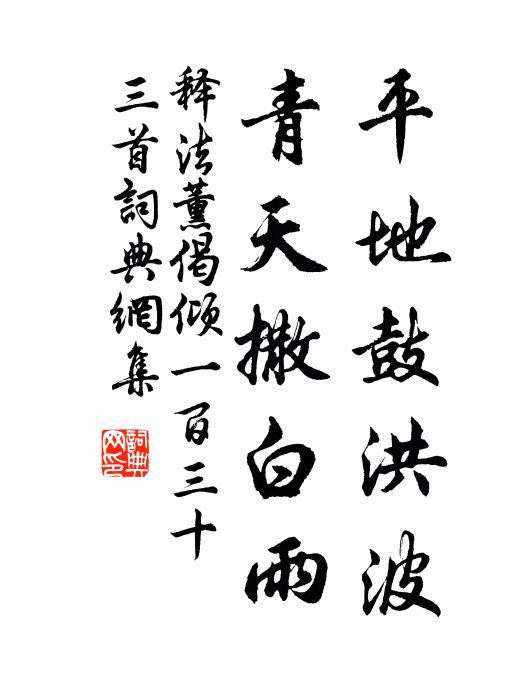 平地鼓洪波
青天撒白雨
释法薰偈倾一百三十
三首詞典網集
詞典
网印